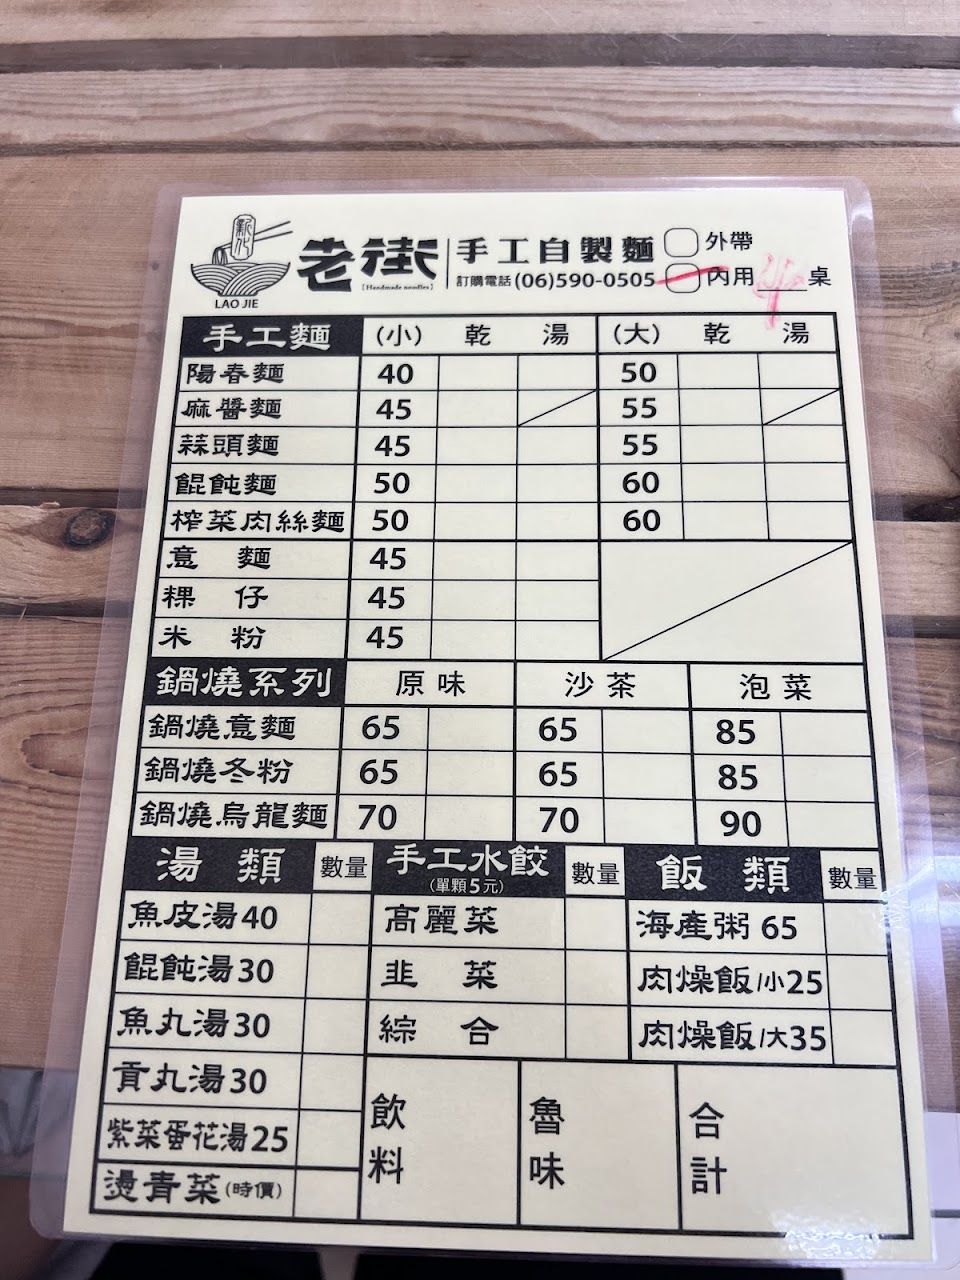 新化
LAO JIE
老街
[Handmade noodles]
手工自製麵
訂購電話 (06)590-0505
外帶
內用 桌
手工麵 (小) 乾 湯 (大) 乾 湯
陽春麵 40 50
麻醬麵 45 55
蒜頭麵 45 55
餛飩麵 50 60
榨菜肉絲麵 50 60
意麵 45
粿仔 45
米粉 45
鍋燒系列 原味 沙茶 泡菜
鍋燒意麵 65 65 85
鍋燒冬粉 65 65 85
鍋燒烏龍麵 70 70 90
湯類 數量 手工水餃 (單顆5元) 數量 飯類 數量
魚皮湯40 高麗菜 海產粥 65
餛飩湯30 韭菜 肉燥飯/小25
魚丸湯30 綜合 肉燥飯/大35
貢丸湯30
紫菜蛋花湯25
燙青菜(時價)
飲料 魯味 合計